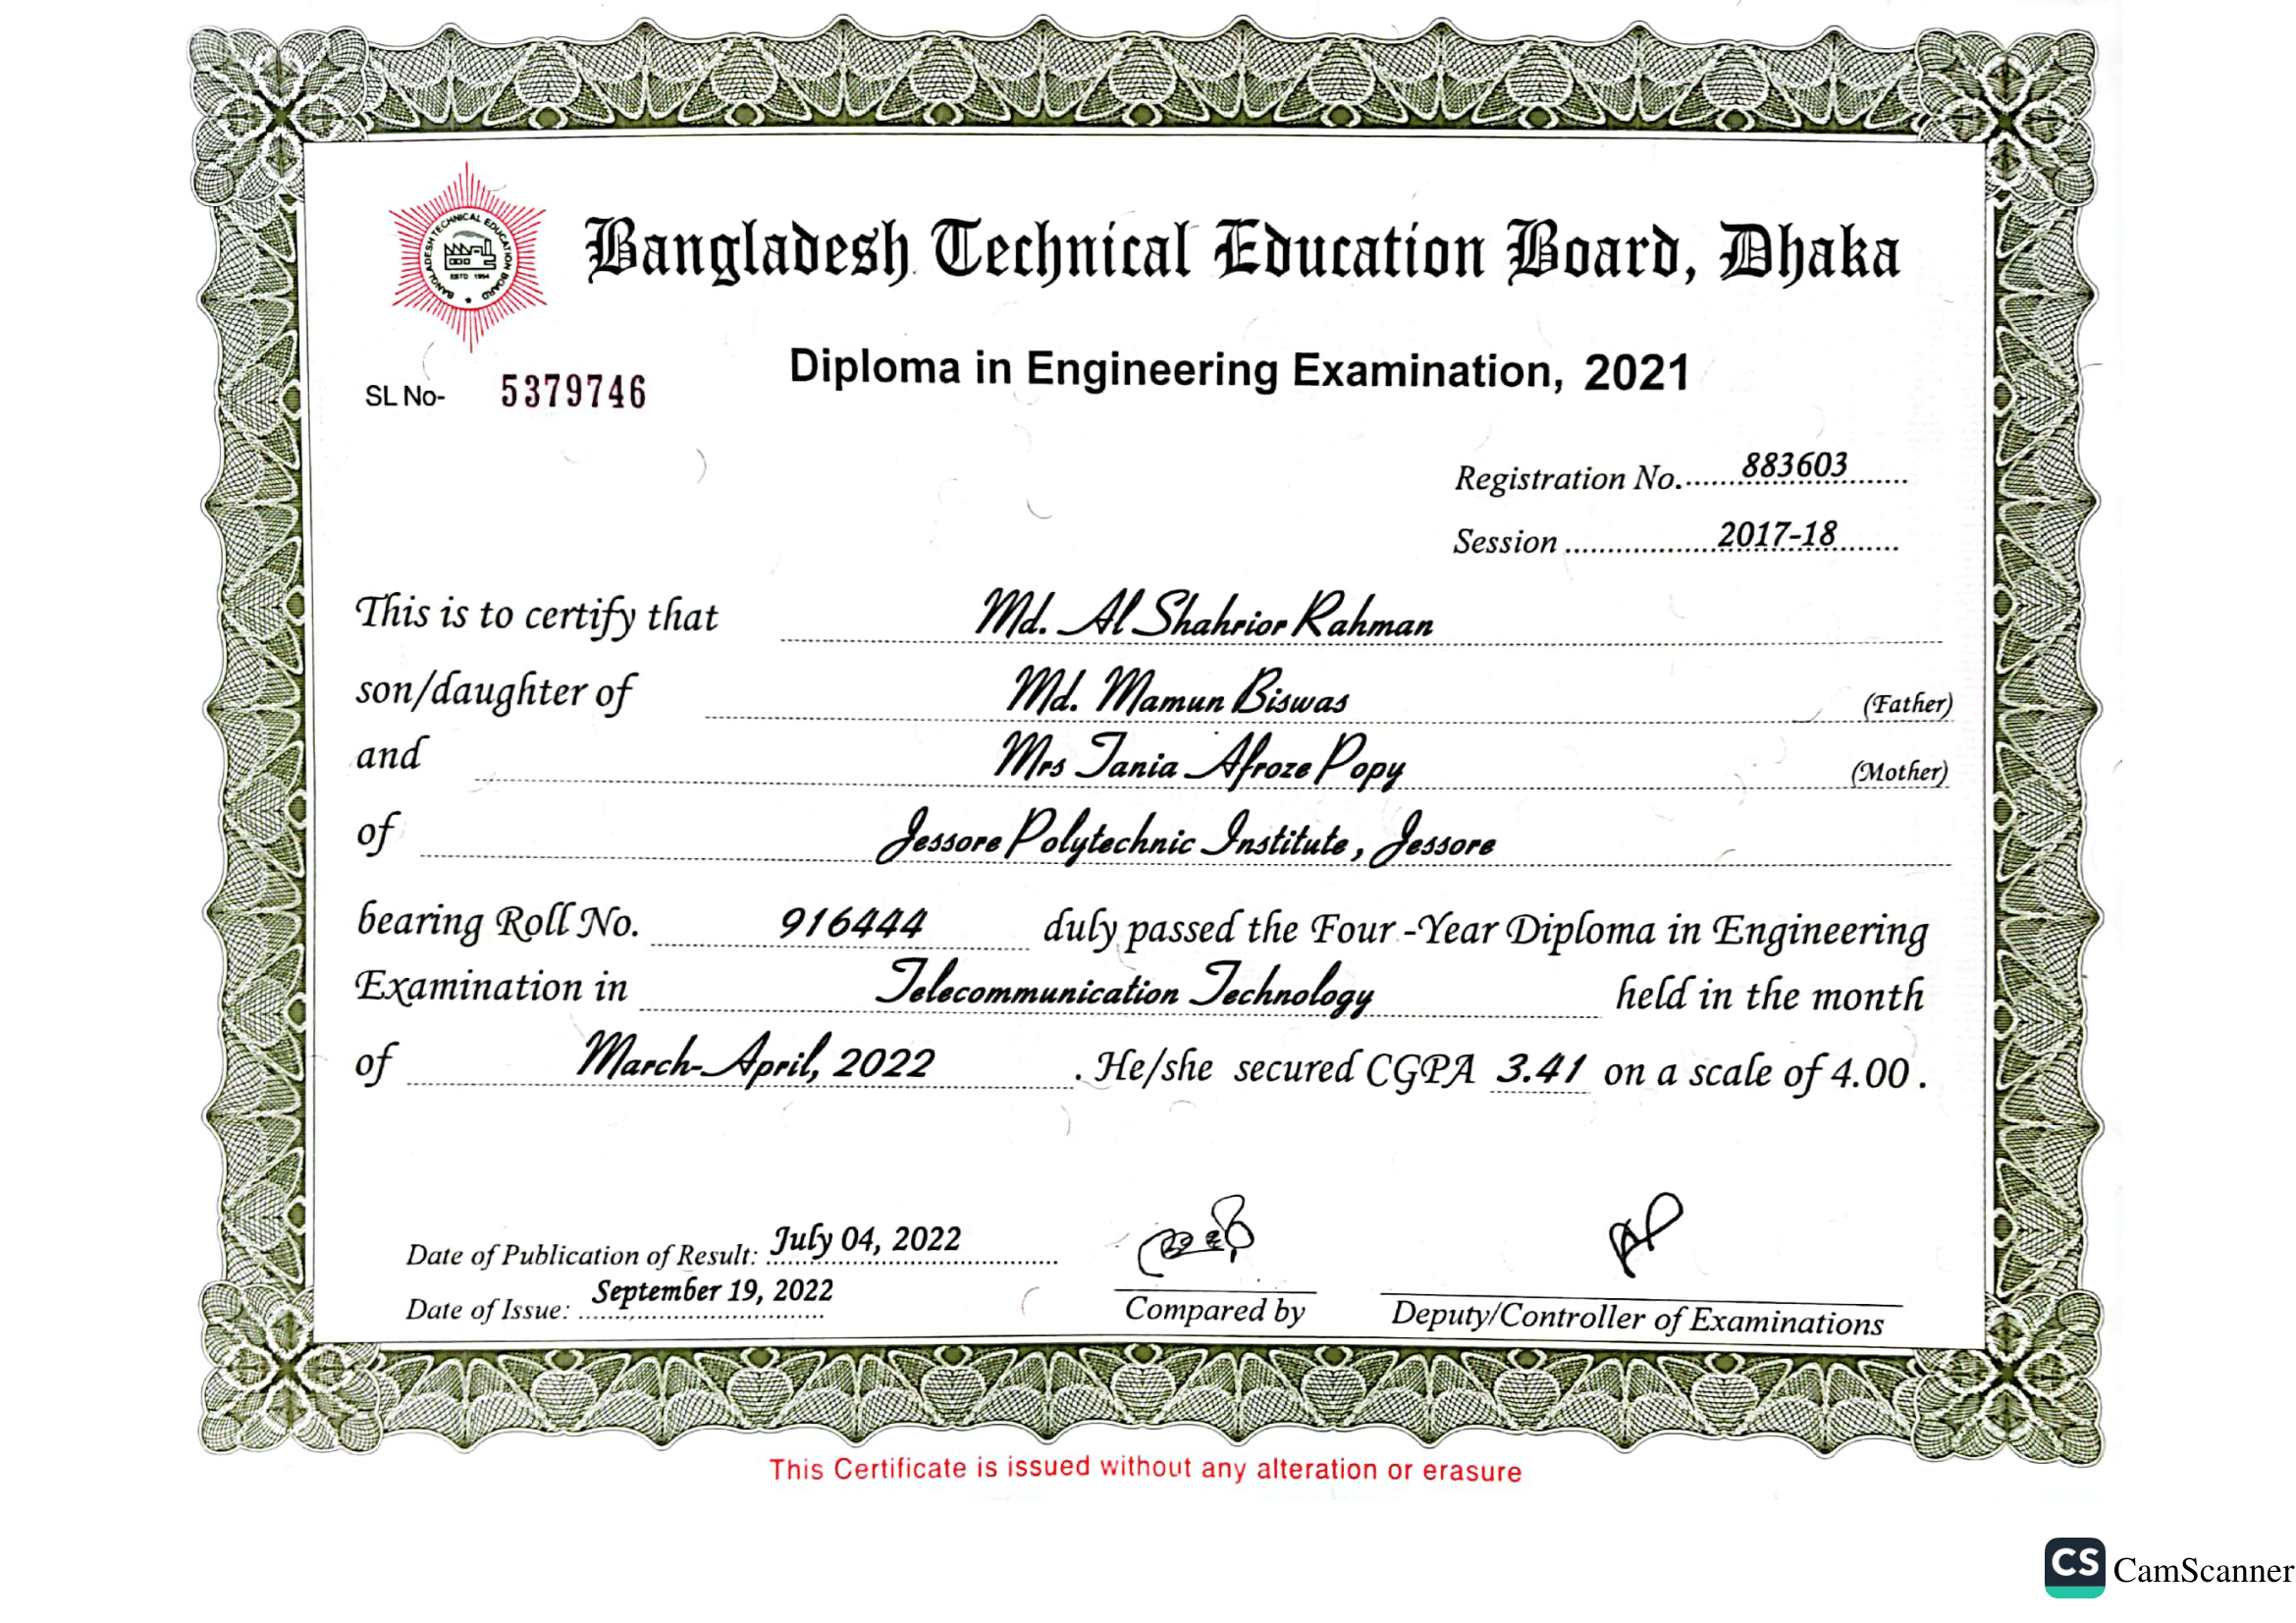 Bangladesh Technical Education Board, Dhaka
BANGLADESH TECHNICAL EDUCATION BOARD
ESTD 1954
Diploma in Engineering Examination, 2021
SL No- 5379746
Registration No. 883603
Session 2017-18
This is to certify that Md. Al Shahrior Rahman
son/daughter of Md. Mamun Biswas (Father)
and Mrs Tania Afroze Popy (Mother)
of Jessore Polytechnic Institute, Jessore
bearing Roll No. 916444 duly passed the Four-Year Diploma in Engineering
Examination in Telecommunication Technology held in the month
of March-April, 2022. He/she secured CGPA 3.41 on a scale of 4.00.
Date of Publication of Result: July 04, 2022
Date of Issue: September 19, 2022
Compared by
Deputy/Controller of Examinations
This Certificate is issued without any alteration or erasure
CS CamScanner